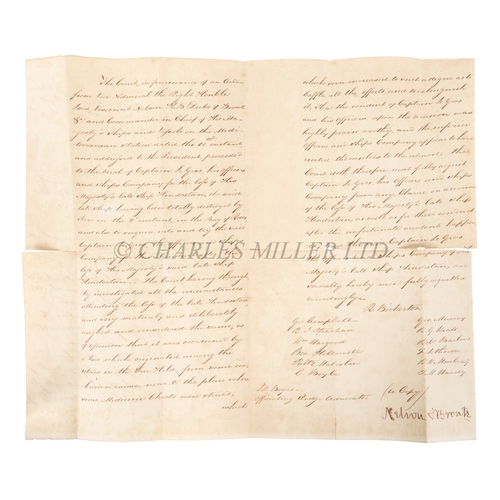 The Court, in pursuance of an Order
from Vice Admiral the Right Honble
Lord Viscount Nelson K.B. Duke of Bronté
&c and Commander in Chief of His Ma-
jesty's Ships and Vessels in the Medi-
terranean Station dated the 11 instant
and addressed to the President proceeded
to the trial of Captain Le Gros, his Officers
and Ships Company for the loss of His
Majesty's late Ship Hindostan, the said
late Ship having been totally destroyed by
Fire on the 2nd instant, in the Bay of Rosas
also to enquire into and try the
Captain
Company
loss of His Majesty's said late Ship
Hindostan. The Court having through-
ly investigated all the circumstances
attending the loss of the late Hindostan
and very maturely and deliberately
weighed and considered the same, is
of Opinion that it was occasioned by
a Fire which originated among the
in the Fore Hold, from some un-
known cause near to the place where
some Medicine Chests were stowed,
which
which were increased to such a degree as to
baffle all the efforts used to extinguish
it, That the conduct of Captain Le Gros
and his Officers upon the occasion was
highly praise worthy, and the inferior
Officers and Ships Company appear to have
exerted themselves to the utmost. The
Court doth therefore most fully acquit
Captain Le Gros, his Officers and Ships
Company from any blame on account
of the loss of His Majesty's late Ship
Hindostan as well as for their conduct
after the unfortunate accident happened
Captain Le Gros
Ships Company of His
Majesty's late Ship Hindostan are
hereby fully acquitted
accordingly.
CHARLES MILLER LTD
R Bickerton
Geo Campbell
R J Strachan
Wm Hargood
Ben Hallowell
C Boyle
Geo Murray
R G Keats
Rt Barlow
T M Hardy
Officiating Judge Advocate
(a Copy)
Nelson & Bronte